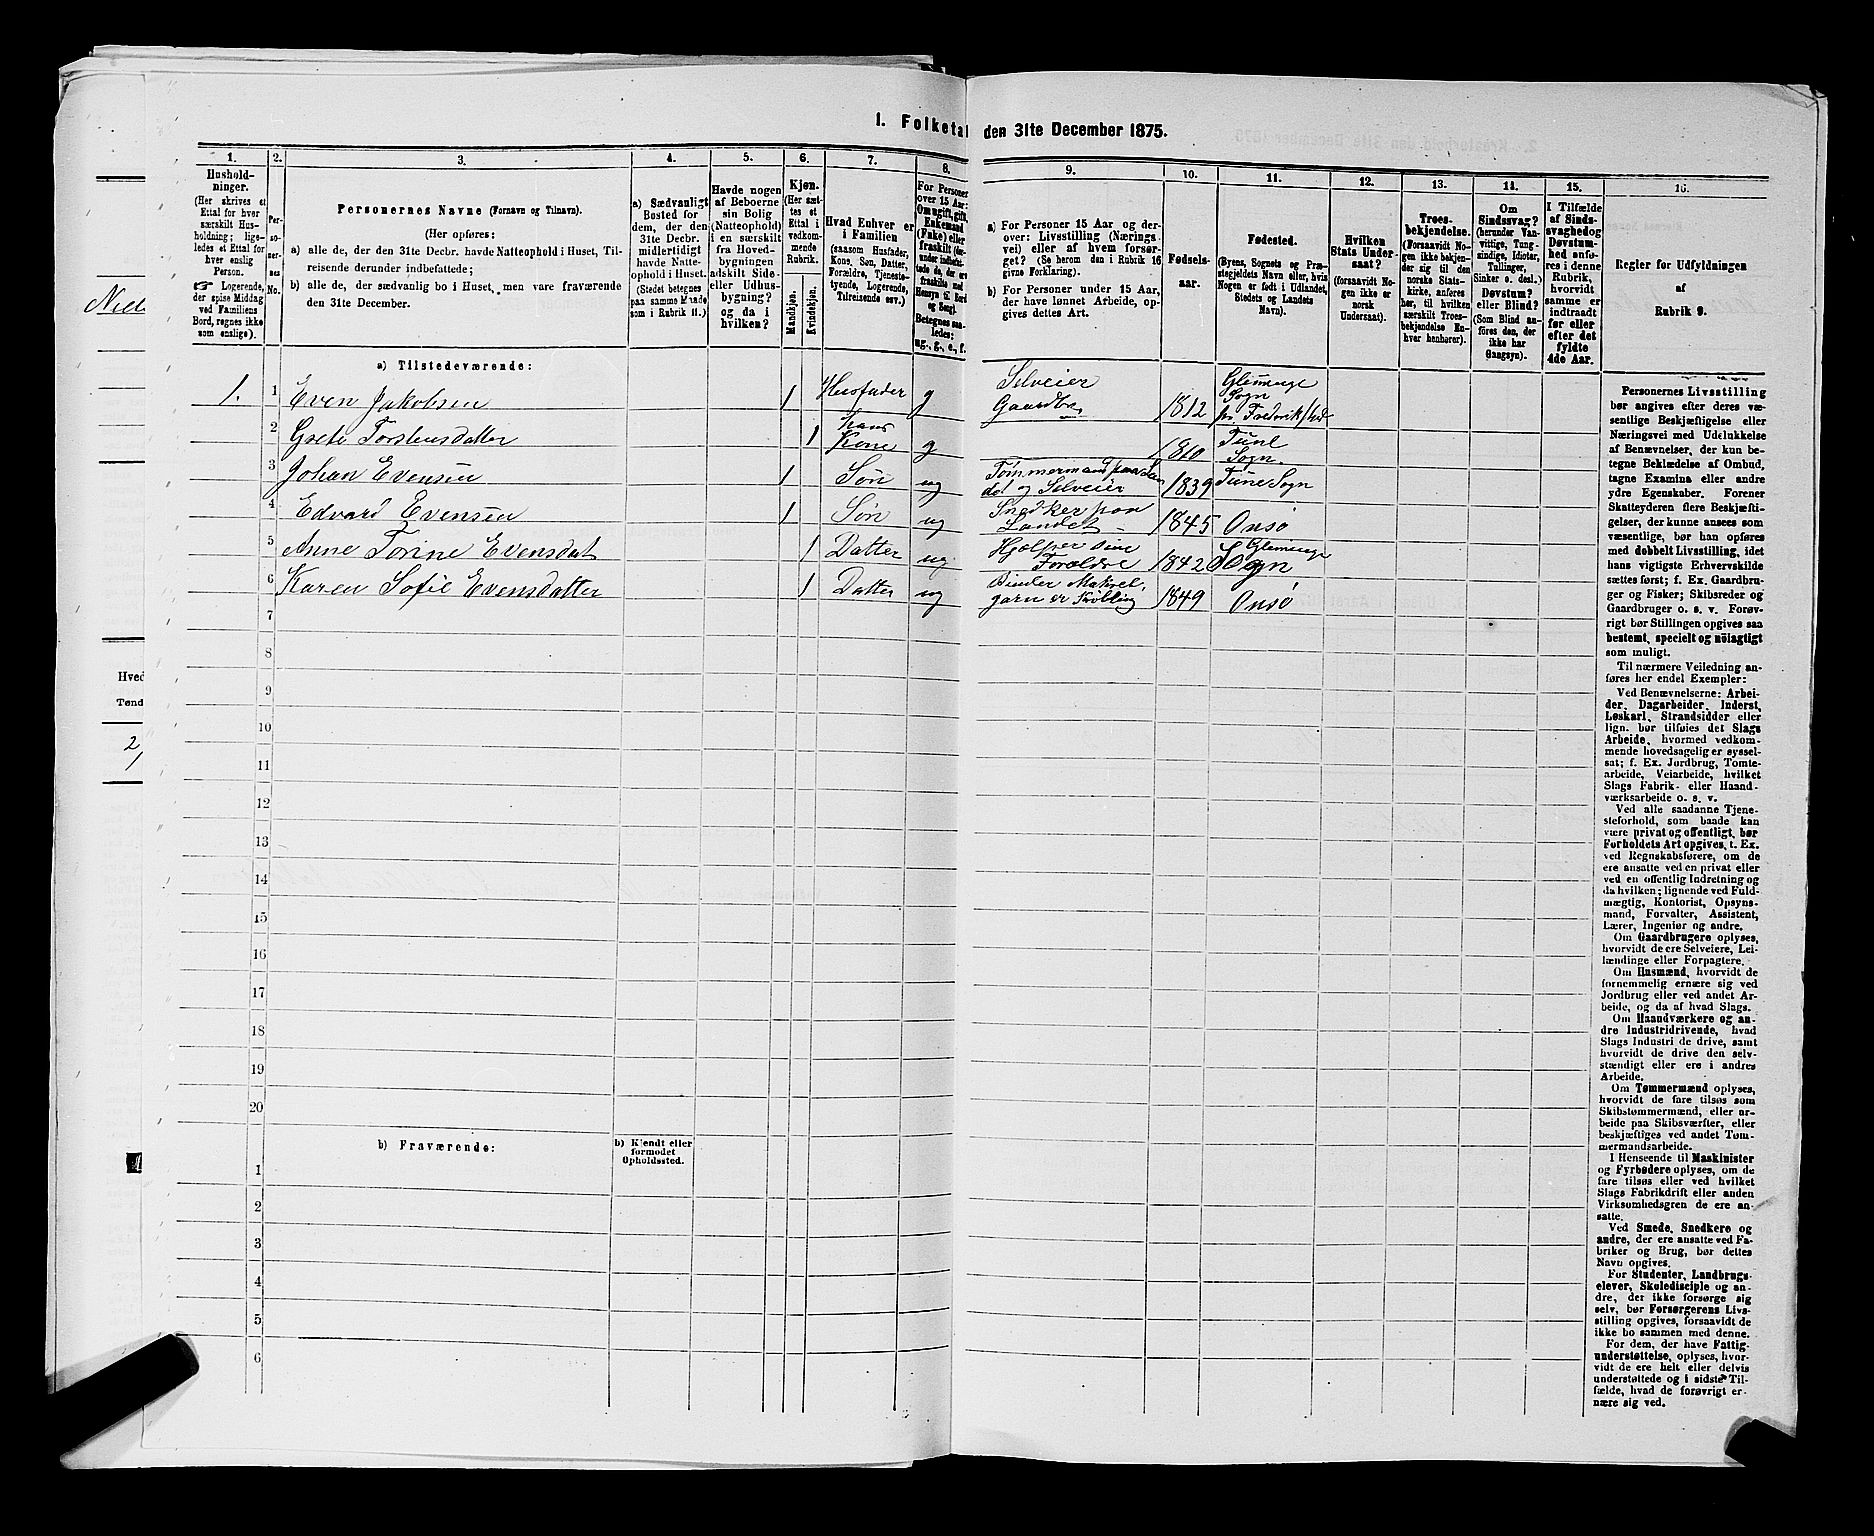 I. Folketal
den 31te December 1875.
1.
2.
3.
4.
5.
6.
7.
8.
9.
10.
11.
12.
13.
14.
15.
16.
Hushold-
ninger.
(Her skrives et
Ettal for hver
særskilt Hus-
holdning; lige-
ledes et Ettal for
hver enslig
Person.
☞ Logerende,
der spise Middag
ved Familiens
Bord, regnes ikke
som enslige).
Per-
so-
ner-
nes
No.
Personernes Navne (Fornavn og Tilnavn).
(Her opføres:
a) alle de, der den 31te Decbr. havde Natteophold i Huset, Til-
reisende derunder indbefattede;
b) alle de, der sædvanlig bo i Huset, men vare fraværende
den 31te December.
a) Sædvanligt
Bosted for
dem, der den
31te Decbr.
midlertidigt
havde Natte-
ophold i Huset.
(Stedet betegnes
paa samme Maade
som i Rubrik 11.)
Havde nogen
af Beboerne
sin Bolig
(Natteophold)
i en særskilt
fra Hoved-
bygningen
adskilt Side-
eller Udhus-
bygning?
og da i
hvilken?
Kjøn.
(Her sæt-
tes et
Ettal i
vedkom-
mende
Rubrik.
Mandkjøn.
Kvindekjøn.
Hvad Enhver er
i Familien
(saasom Husfader,
Kone, Søn, Datter,
Forældre, Tjeneste-
tyende, Logerende,
Tilreisende osv.)
For Personer
over 15 Aar:
Om ugift, gift,
Enkemand
(Enke) eller
fraskilt
Betegnes saa-
ledes:
ug., g., e., f.
a) For Personer 15 Aar og der-
over: Livsstilling (Nærings-
vei) eller af hvem forsør-
get? (Se herom den i Rubrik 16
givne Forklaring).
b) For Personer under 15 Aar,
der have lønnet Arbeide, op-
gives dettes Art.
Fødsels-
aar.
Fødested.
(Byens, Sognets og Præ-
stegjeldets Navn eller, hvis
Nogen er født i Udlandet,
Stedets og Landets
Navn).
Hvilken
Stats Under-
saat?
(forsaavidt No-
gen ikke er
norsk
Undersaat).
Troes-
bekjendelse.
(Forsaavidt No-
gen ikke bekjen-
der sig til den
norske Stats-
kirke, anføres
her, til hvilken
særskilt Troes-
bekjendelse En-
hver henhører).
Om
Sindssvag?
(herunder Van-
vittige, Tung-
sindige, Idioter,
Tullinger,
Sinker o. desl.)
Døvstum?
eller Blind?
(Som Blind an-
føres den, der
ikke har
Gangsyn).
I Tilfælde
af Sinds-
svaghed og
Døvstum-
hed anfø-
res i denne
Rubrik,
hvorvidt
samme er
indtraadt
før eller
efter det
fyldte
4de Aar.
Regler for Udfyldningen
af
Rubrik 9.
a) Tilstedeværende:
1. 1 Even Jakobsen 1 Husfader g Selveier Gaardbr 1812 Glemmige Sogn pr. Fredrikshed
2 Grete Torstensdatter 1 hans Kone g 1810 Tune Sogn
3 Johan Evensen 1 Søn ug Tømmermand paa Lan det og Selveier 1839 Tune Sogn
4 Edvard Evensen 1 Søn ug Snedker paa Landet 1845 Onsö
5 Anne Torine Evensdat 1 Datter ug Hjælper sine Forældre 1842 Glemmige Sogn
6 Karen Sofie Evensdatter 1 Datter ug Binder Makrel garn er 1849 Onsö
7
8
9
10
11
12
13
14
15
16
17
18
19
20
b) Fraværende:
b) Kjendt eller
formodet
Opholdssted.
1
2
3
4
5
6
Hved
Tønd
2/
Personernes Livsstilling
bør angives efter deres væ-
sentlige Beskjæftigelse eller
Næringsvei med Udelukkelse
af Benævnelser, der kun be-
tegne Beklædelse af Ombud,
tagne Examina eller andre
ydre Egenskaber. Forener
Skatteyderen flere Beskjæfti-
gelser, der kunne ansees som
væsentlige, bør han opføres
med dobbelt Livsstilling, idet
hans vigtigste Erhvervskilde
sættes først; f. Ex. Gaardbru-
ger og Fisker; Skibsreder og
Gaardbruger o. s. v. Forøv-
rigt bør Stillingen opgives saa
bestemt, specielt og nøiagtigt
som muligt.
Til nærmere Veiledning an-
føres her endel Exempler:
Ved Benævnelserne: Arbei-
der, Dagarbeider, Inderst,
Løskarl, Strandsidder eller
lign. bør tilføies det Slags
Arbeide, hvormed vedkom-
mende hovedsagelig er syssel-
sat; f. Ex. Jordbrug, Tomte-
arbeide, Veiarbeide, hvilket
Slags Fabrik- eller Haand-
værksarbeide o. s. v.
Ved alle saadanne Tjene-
steforhold, som baade kan
være privat og offentligt, bør
Forholdets Art opgives, t. Ex.
ved Regnskabsførere, om de
ere ansatte ved en privat eller
ved en offentlig Indretning og
da hvilken; lignende ved Fuld-
mægtig, Kontorist, Opsyns-
mand, Forvalter, Assistent,
Lærer, Ingeniør og andre.
Om Gaardbrugere oplyses,
hvorvidt de ere Selveiere, Lei-
lændinge eller Forpagtere.
Om Husmænd, hvorvidt de
fornemmelig ernære sig ved
Jordbrug eller ved andet Ar-
beide, og da af hvad Slags.
Om Haandværkere og an-
dre Industridrivende, hvad
Slags Industri de drive, samt
hvorvidt de drive den selv-
stændigt eller ere i andres
Arbeide.
Om Tømmermænd oplyses,
hvorvidt de fare tilsøs som
Skibstømmermænd, eller ar-
beide paa Skibsværfter, eller
beskjæftiges ved andet Tøm-
mermandsarbeide.
I Henseende til Maskinister
og Fyrbødere oplyses, om de
fare tilsøs eller ved hvilket
Slags Fabrikdrift eller anden
Virksomhedsgren de ere an-
satte.
Ved Smede, Snedkere og
andre, der ere ansatte ved Fa-
briker og Brug, bør dettes
Navn opgives.
For Studenter, Landbrugs-
elever, Skoledisciple og an-
dre, der ikke forsørge sig
selv, bør Forsørgerens Livs-
stilling opgives, forsaavidt de
ikke bo sammen med denne.
For dem, der have Fattig-
understøttelse, oplyses, hvor-
vidt de ere helt eller delvis
understøttede og i sidste Til-
fælde, hvad de forøvrigt er-
nære sig ved.